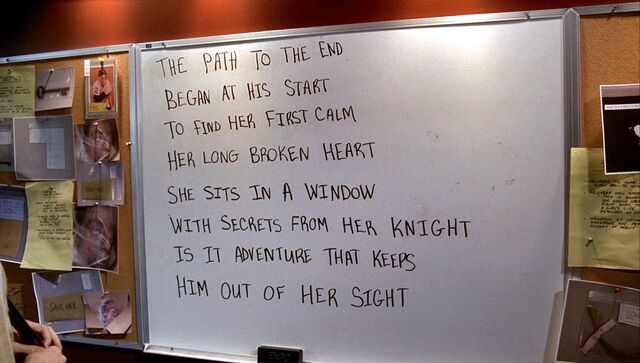 THE PATH TO THE END
BEGAN AT HIS START
TO FIND HER FIRST CALM
HER LONG BROKEN HEART
SHE SITS IN A WINDOW
WITH SECRETS FROM HER KNIGHT
IS IT ADVENTURE THAT KEEPS
HIM OUT OF HER SIGHT
SAVE HER